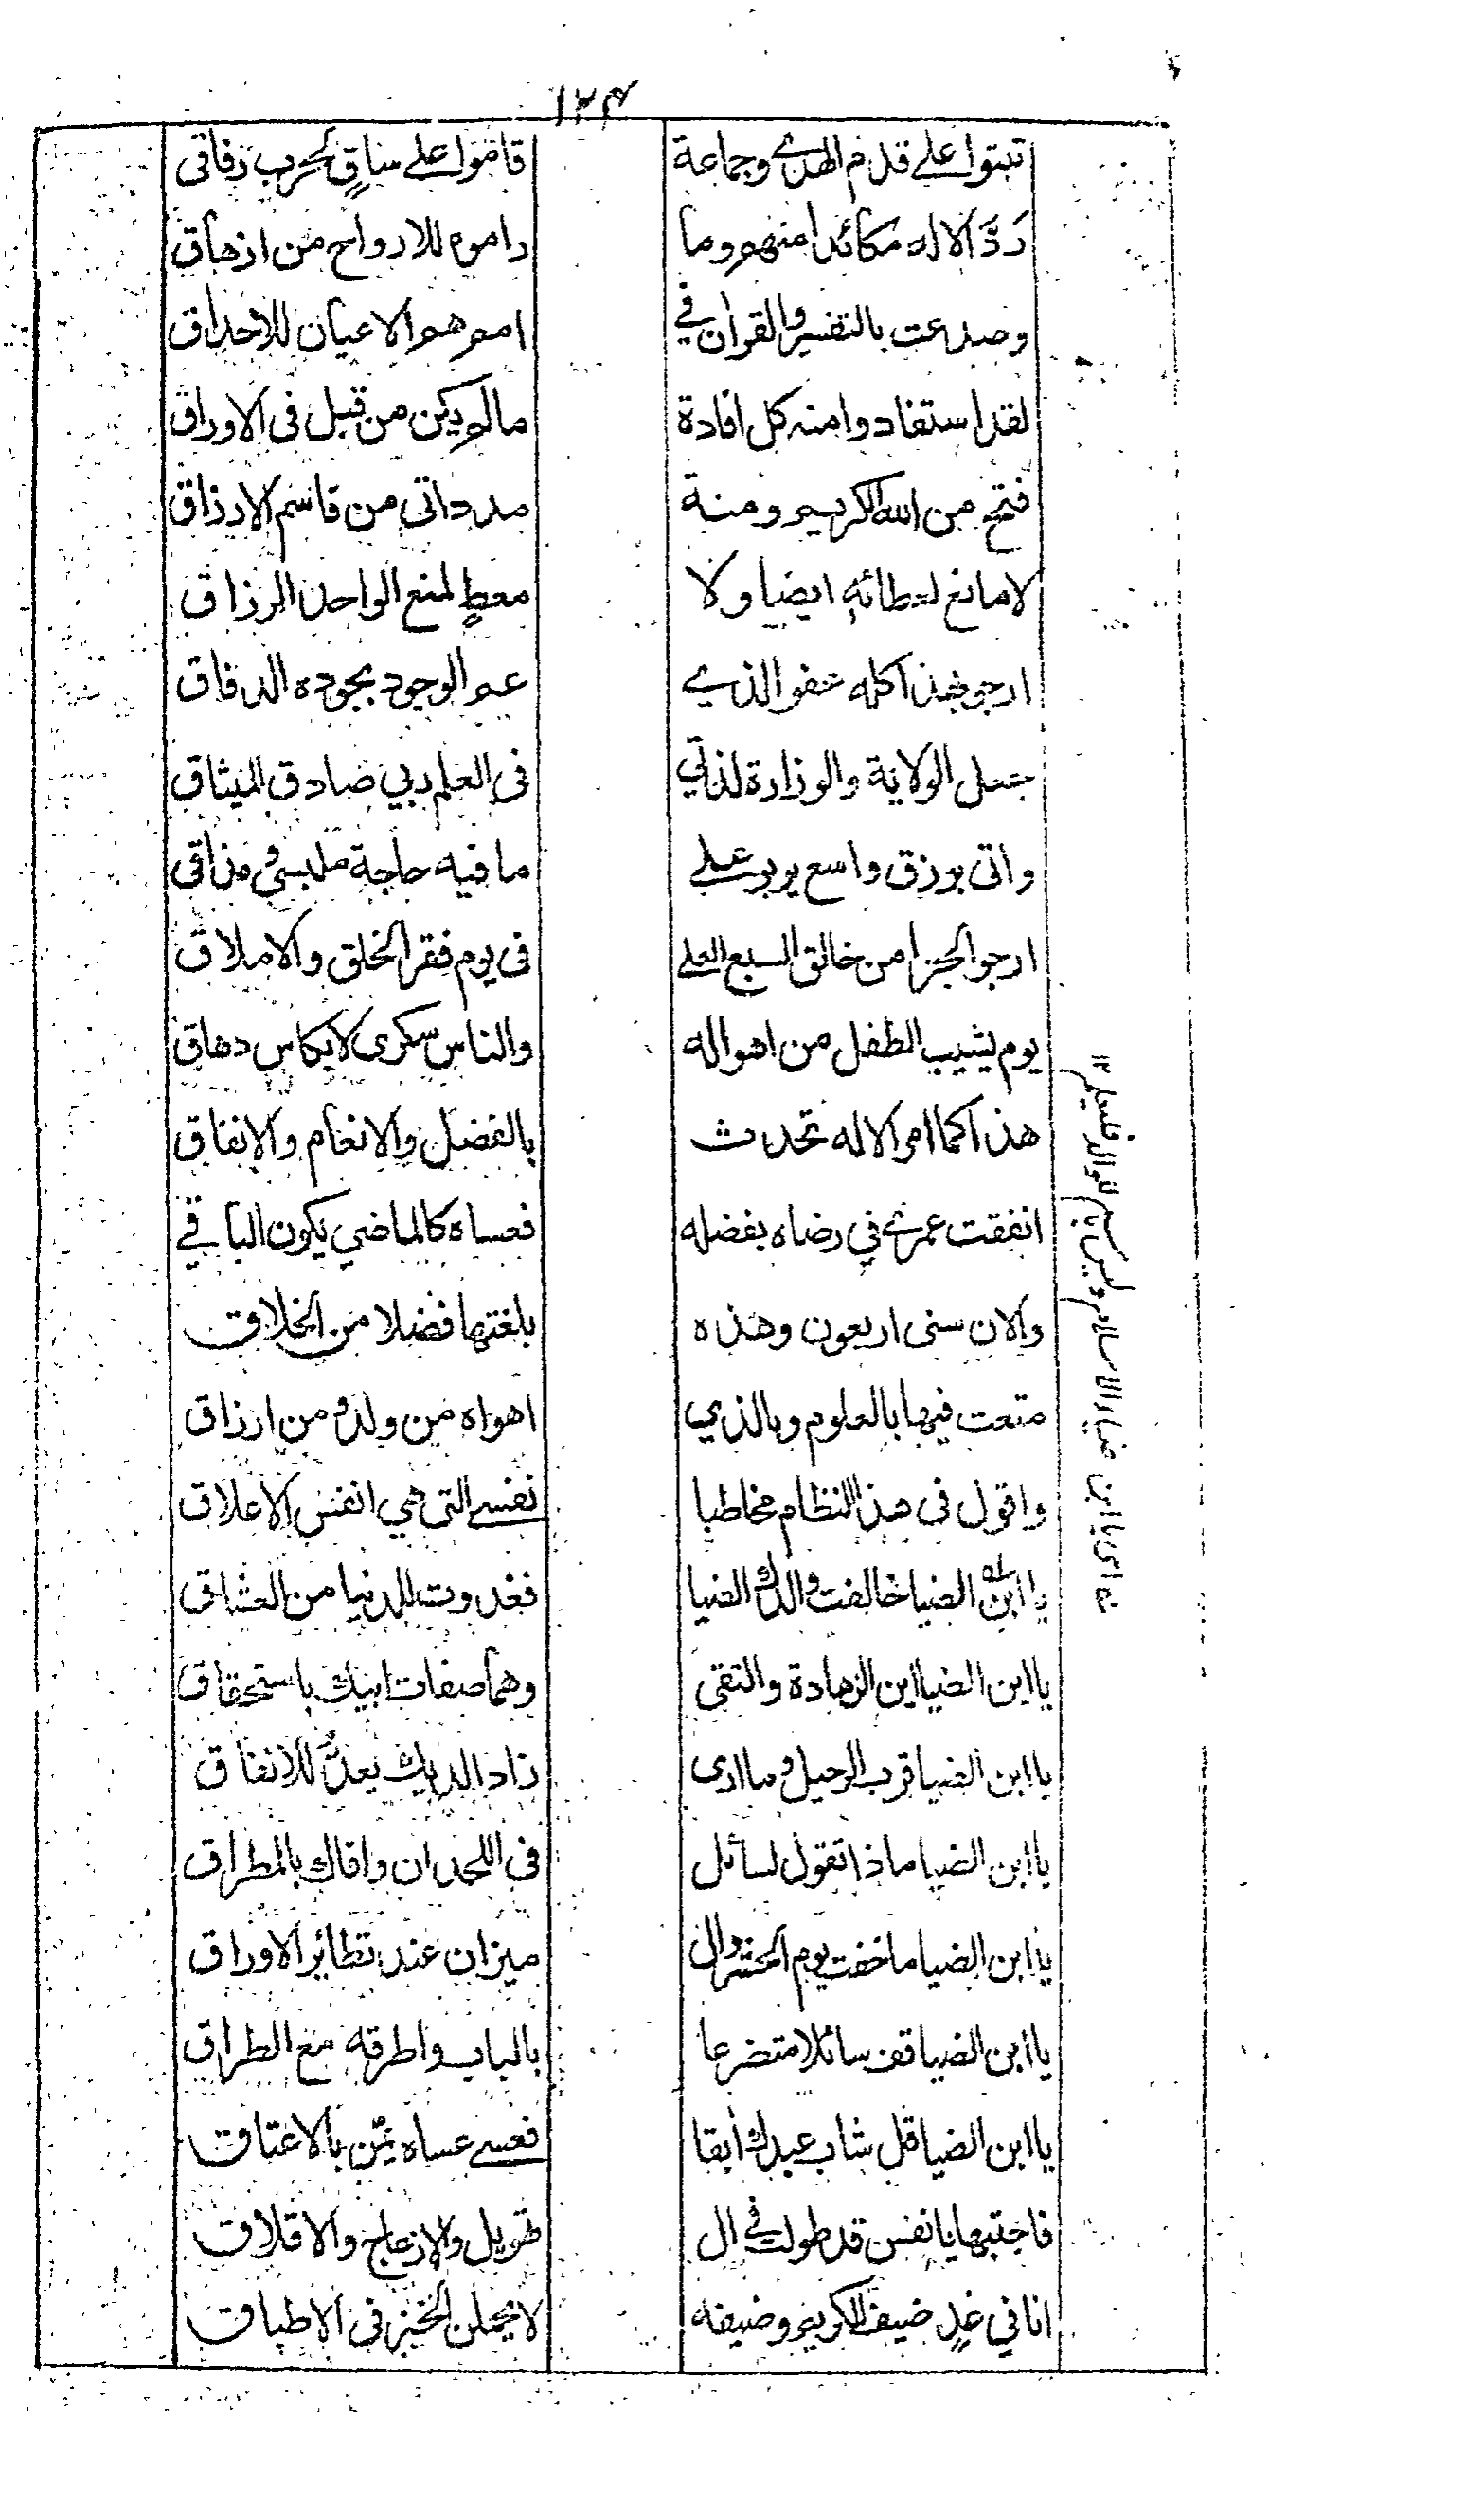 ١٢۴
ثبتوا علے قدم الهدے وجماعة قاموا علے ساقٍ لحرب رفاقي
رَدَّ الاله مكائدا منهم وما راموه للارواح من ازهاق
وصدعت بالتفسير والقران في امم هم الاعيان للاحداق
لقد استفادوا منه كل افادة ما لم يكن من قبل فى الاوراق
فتح من الله الكريم ومنة مدد اتى من قاسم الارزاق
لا مانع لعطائه ايضا ولا معطٍ لمنع الواحد الرزاق
ارجو بهذا كله عفو الذے عم الوجود بجوده الدفاق
جعل الولاية والوزارة لذتي فى العلم ربي صادق الميثاق
واتى برزق واسع يربو علے ما فيه حاجة ملبسي ومذاقي
ارجو الجزا من خالق السبع العلے فى يوم فقر الخلق والاملاق
يوم يشيب الطفل من اهواله والناس سكرى لا بكاس دهاق
هذا كما امر الاله تحدث بالفضل والانعام والانفاق
انفقت عمرے في رضاه بفضله فعساه كالماضي يكون الباقے
والان سنى اربعون وهذه بلغتها فضلا من الخلاق
متعت فيها بالعلوم وبالذي اهواه من ولد ومن ارزاق
واقول فى هذا النظام مخاطبا نفسے التى هي انفس الاعلاق
يا ابن الضيا خالفت والدك الضيا فغدوت للدنيا من العشاق
يا ابن الضيا اين الزهادة والتقى وهما صفات ابيك باستحقاق
يا ابن الضيا قرب الرحيل وما ارى زاد الديك يعدُّ للانفاق
يا ابن الضيا ماذا تقول لسائل فى اللحد ان وافاك بالمطراق
يا ابن الضيا ما خفت يوم الحشر وال ميزان عند تطائر الاوراق
يا ابن الضيا قف سائلا متضرعا بالباب واطرقه مع الطراق
يا ابن الضيا قل شاب عبدك ابقا فعسے عساه يمن بالاعتاق
فاجبتها يا نفس قد طولت في ال تهويل والازعاج والاقلاق
انا في غدٍ ضيف الكريم وضيفه لا يحملن الخبز فى الاطباق